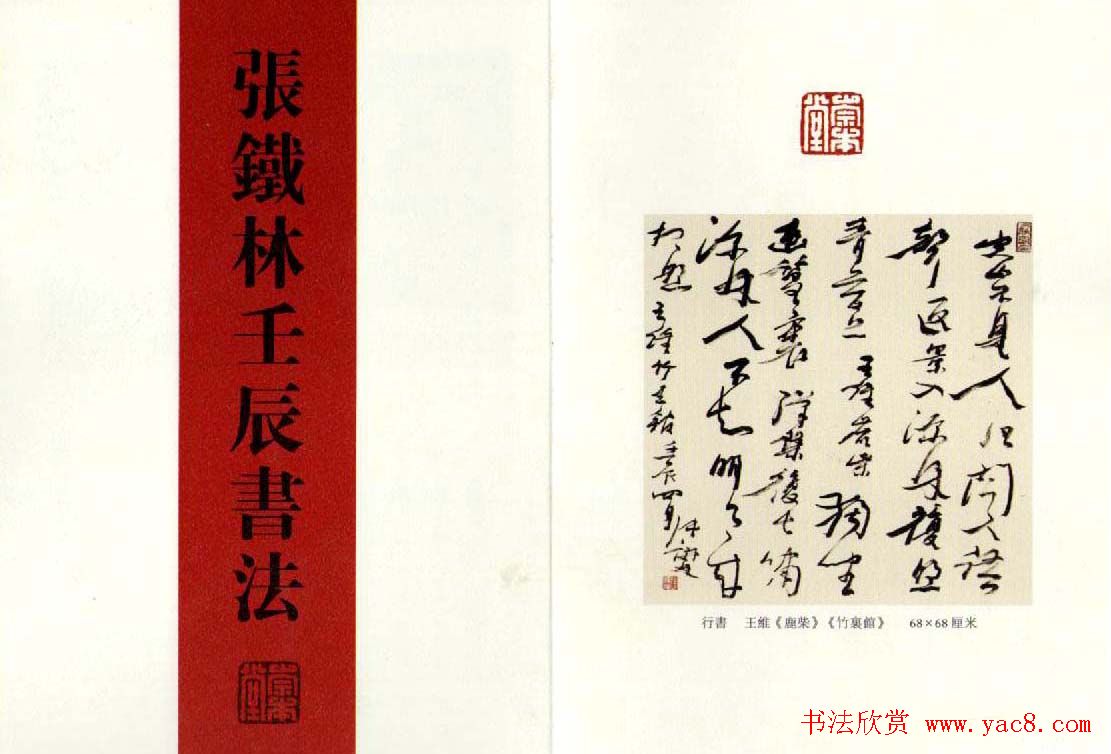 張鐵林壬辰書法
崇本堂
崇本堂
空山不見人但聞人語
響返景入深林復照
青苔上 王維鹿柴 獨坐
幽篁裏彈琴復長嘯
深林人不知明月來
相照 王維竹里館 壬辰四月
行書 王維《鹿柴》《竹裏館》 68×68厘米
书法欣赏 www.yac8.com